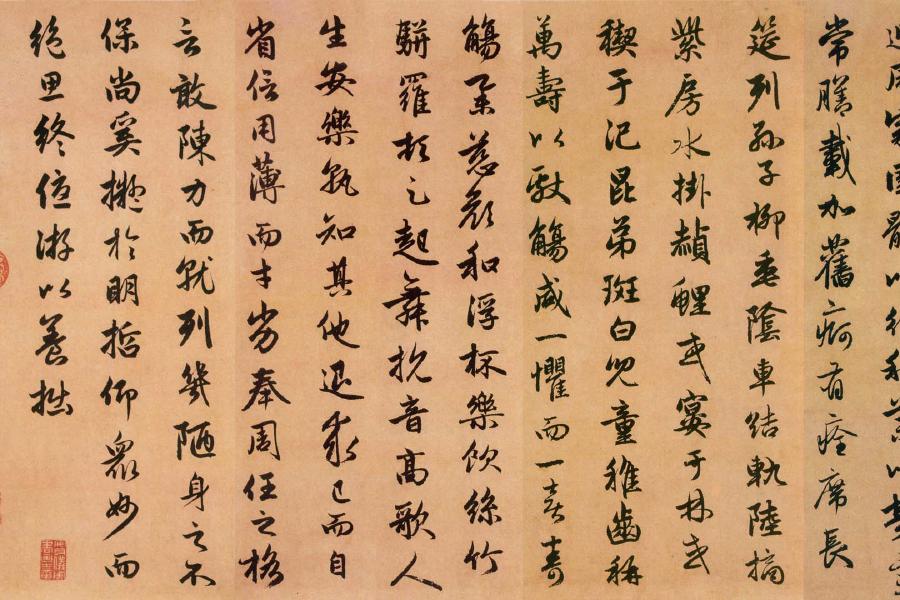 常膳載加舊痾有痊席長
筵列孫子柳垂陰車結軌陸摘
紫房水掛赬鯉或宴于林或
禊于汜昆弟斑白兒童稚齒稱
萬壽以獻觴咸一懼而一喜壽
觴舉慈顏和浮杯樂飲絲竹
駢羅頓足起舞抗音高歌人
生安樂孰知其他退求己而自
省信用薄而才劣奉周任之格
言敢陳力而就列幾陋身之不
保尚奚擬於明哲仰衆妙而
絶思終優游以養拙